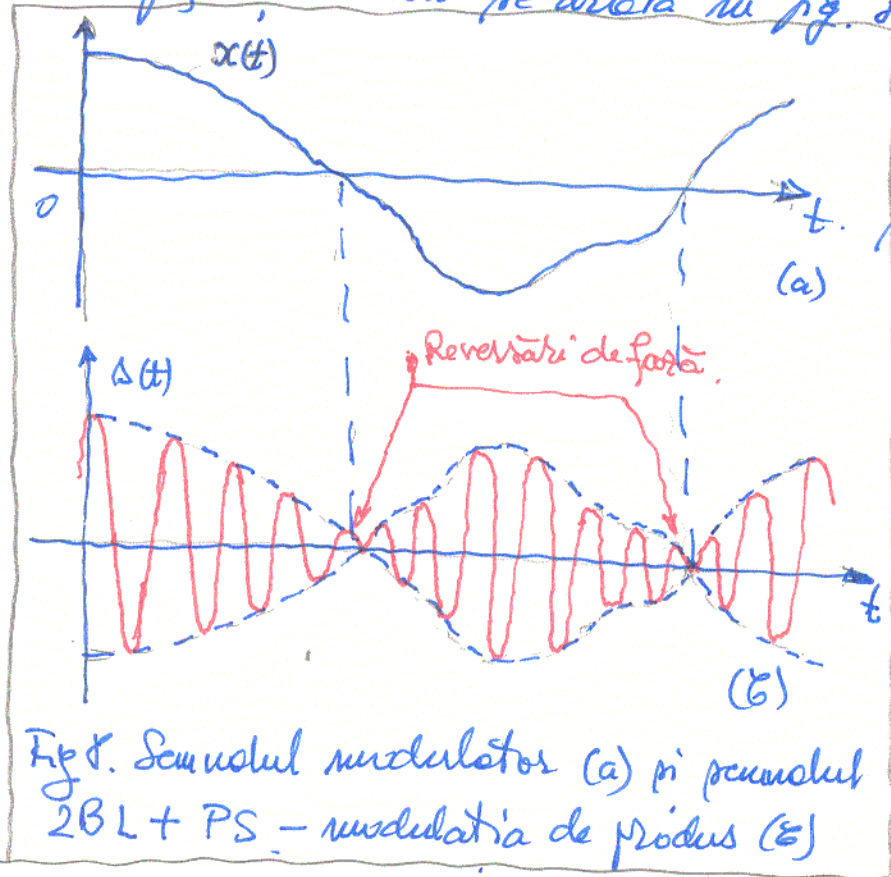 pg. 8
x(t)
0
t.
(a)
Reversări de fază.
s(t)
t
(b)
Fig 8. Semnalul modulator (a) și semnalul
2BL + PS – modulatia de produs (b)